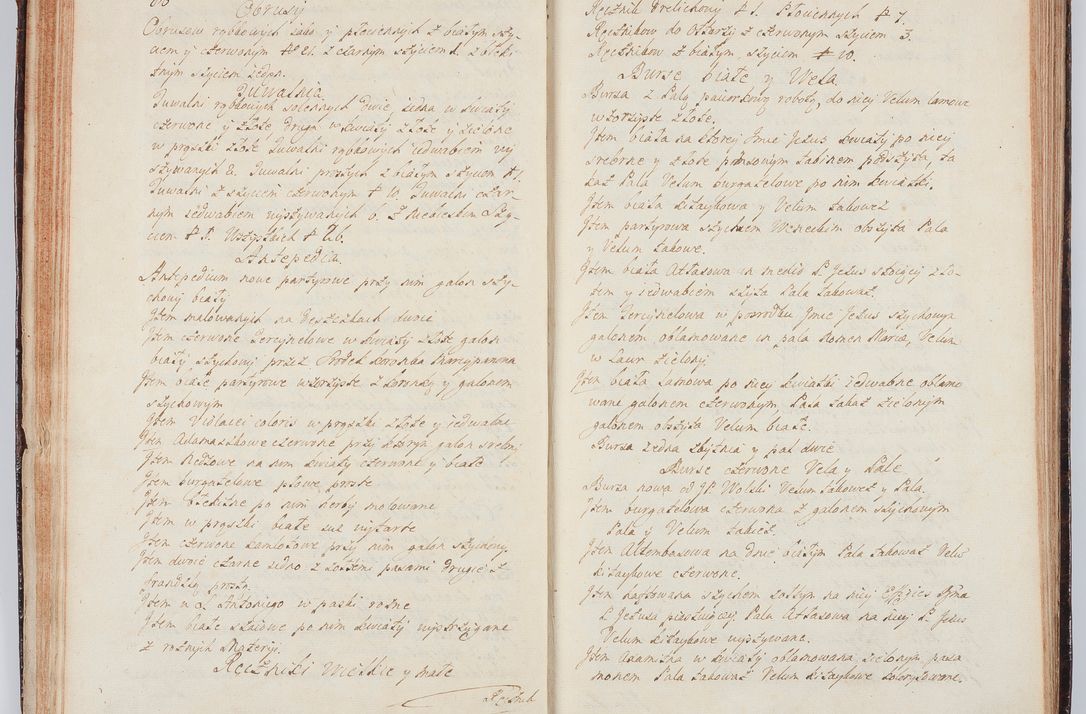 Obrusy
Obrusow rąbkowych tako y płociennych z białym szy-
ciem y czerwonym # 21. z czarnym szyciem 1. z błęk-
itnym szyciem jeden.
Tuwalnia
Tuwalni rąbkowych solennych dwie, jedna w kwiaty
czerwone y złote, druga w kwiaty złote y zielone
w prążki złote Tuwalni rąbkowych jedwabiem wy
szywanych 8. Tuwalni prostych z białym szyciem # 7.
Tuwalni z szyciem czerwonym # 10. Tuwalni czar-
nym jedwabiem wyszywanych 6. z niebieskim szy-
ciem # 1. Wszystkich # 26.
Antepedia
Antepedium nowe partyrowe przy nim galon szy-
chowy biały
Item malowanych na deszczkach dwoie
Item czerwone tercynelowe w kwiaty złote galon
biały szychowy przez środek koronka
Item białe partyrowe wzorzyste z koronką y galonem
szychowym
Item Violacei coloris w prążki złote y jedwabne
Item Adamaszkowe czerwone przy którym galon srebrny
Item na nim kwiaty czerwone y białe
Item burgatelowe płowe proste
Item błękitne po nim herby malowane
Item w prążki białe już wytarte
Item czerwone kamlotowe przy nim galon szychowy
Item dwoie czarne jedno z żołtemi pasami drugie z
frandzlą prostą
Item u S. Antoniego w paski rożne
Item białe po nim kwiaty wystrzygane
z rożnych materyi.
Ręczniki wielkie y małe
Ręcznik
Ręcznik Drelichowy # 1. Płociennych # 7.
Ręcznikow do ołtarzy z czerwonym szyciem 3.
Ręcznikow z białym szyciem # 10.
Burse białe y Wela
Bursa z Palą paciorkową roboty, do niey Velum lamowe
wzorzyste złote.
Item biała na ktorey Imie Jezus kwiaty po niey
srebrne y złote ponsowym tabinem podszyta, ta
każ Pala Velum burgatelowe po nim kwiatki.
Item biała kitaykowa y Velum takoweż
Item partyrowa szychem Weneckim obszyta Pala
y Velum takowe.
Item biała Atłasowa in medio P. Jezus stoiący zło-
tem y jedwabiem szyta Pala takoważ.
Item tercynelowa w posrodku Imie Jezus szychowym
galonem oblamowana in pala Nomen Maria, Velum
w Laur zielony.
Item biała lamowa po niey kwiatki jedwabne oblamo
wane galonem czerwonym, Pala takaż zielonym
galonem obszyta Velum białe.
Bursa jedna zbytnia y pal dwie
Burse czerwone Vela y Pale
Bursa nowa od JP. Wolski Velum takoweż y Pala.
Item burgatelowa czerwona z galonem szychowym
Pala y Velum takież.
Item Altembasowa na dnie białym Pala takoważ Velum
kitaykowe czerwone.
Item haftowana szychem żołtym na niey Effigies Sma
P. Jezusa piastuiącey Pala Atłasowa na niey P. Jezus
Velum kitaykowe wyszywane.
Item Axamitna w kwiaty oblamowana zielonym pasa
monem Pala takoważ Velum kitaykowe kolorysowane.